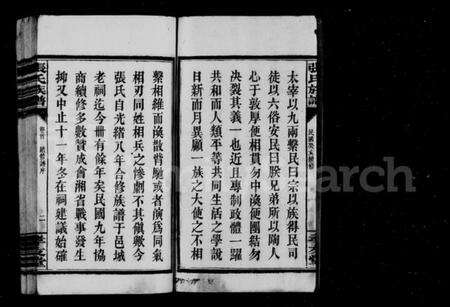 張氏族譜
民國癸亥續修
太宰以九兩繫民曰宗以族得民司
徒以六俗安民曰朕兄弟所以陶人
心于敦厚使相貫勿中渙使團結勿
決裂其義一也近且專制政體一躍
共和而人類平等共同生活之學說
日新而月異顧一族之大使之不相
繫相維而渙散暌馳或者演爲同氣
相刃同姓相兵之慘劇不其傎歟今
張氏自光緒八年合修族譜于邑城
老祠迄今卌有餘年矣民國九年協
商續修多數贊成會湘省戰事發生
抑又中止十一年冬在祠建議始確
張氏族譜
卷首
二